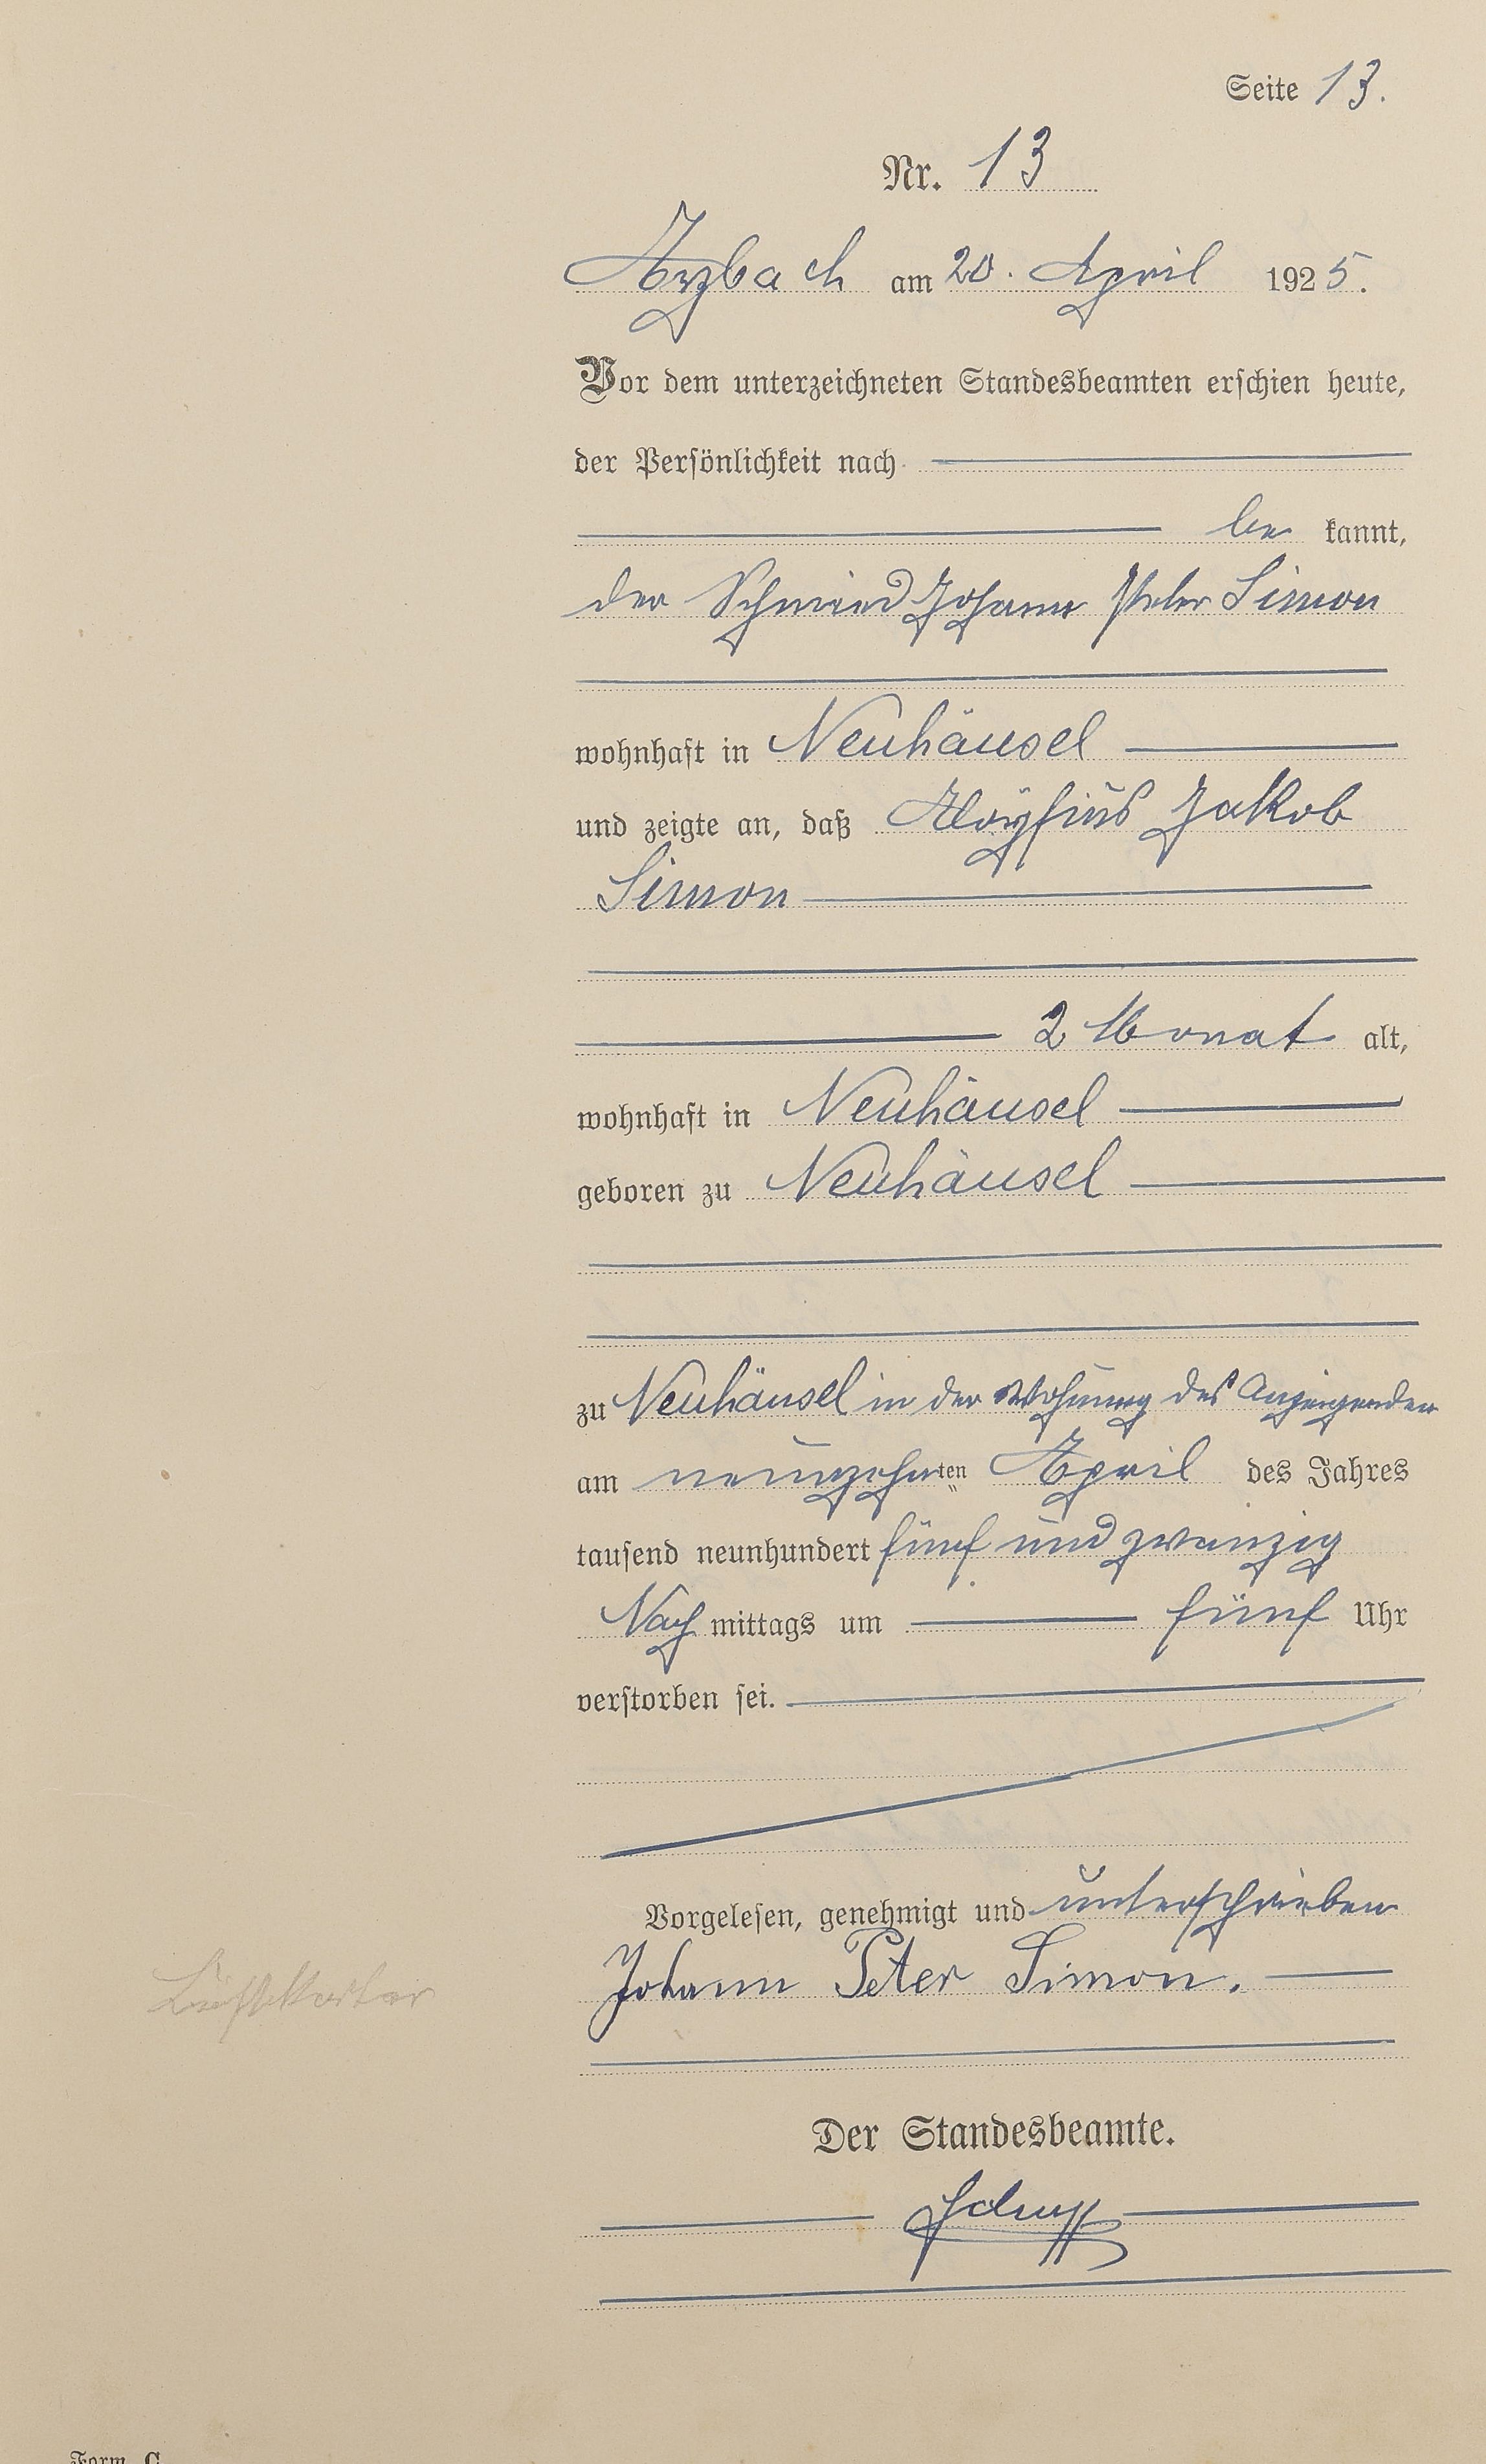 Seite 13.
Nr. 13
Arzbach am 20. April 1925.
Vor dem unterzeichneten Standesbeamten erschien heute,
der Persönlichkeit nach
be kannt,
der Schmied Johann Peter Simon
wohnhaft in Neuhäusel
und zeigte an, daß Aloysius Jakob
Simon
2 Monat alt,
wohnhaft in Neuhäusel
geboren zu Neuhäusel
zu Neuhäusel in der Wohnung des Anzeigenden
am neunzehnten April des Jahres
tausend neunhundert fünf und zwanzig
Nach mittags um fünf Uhr
verstorben sei.
Vorgelesen, genehmigt und unterschrieben
Johann Peter Simon.
Der Standesbeamte.
Form. C